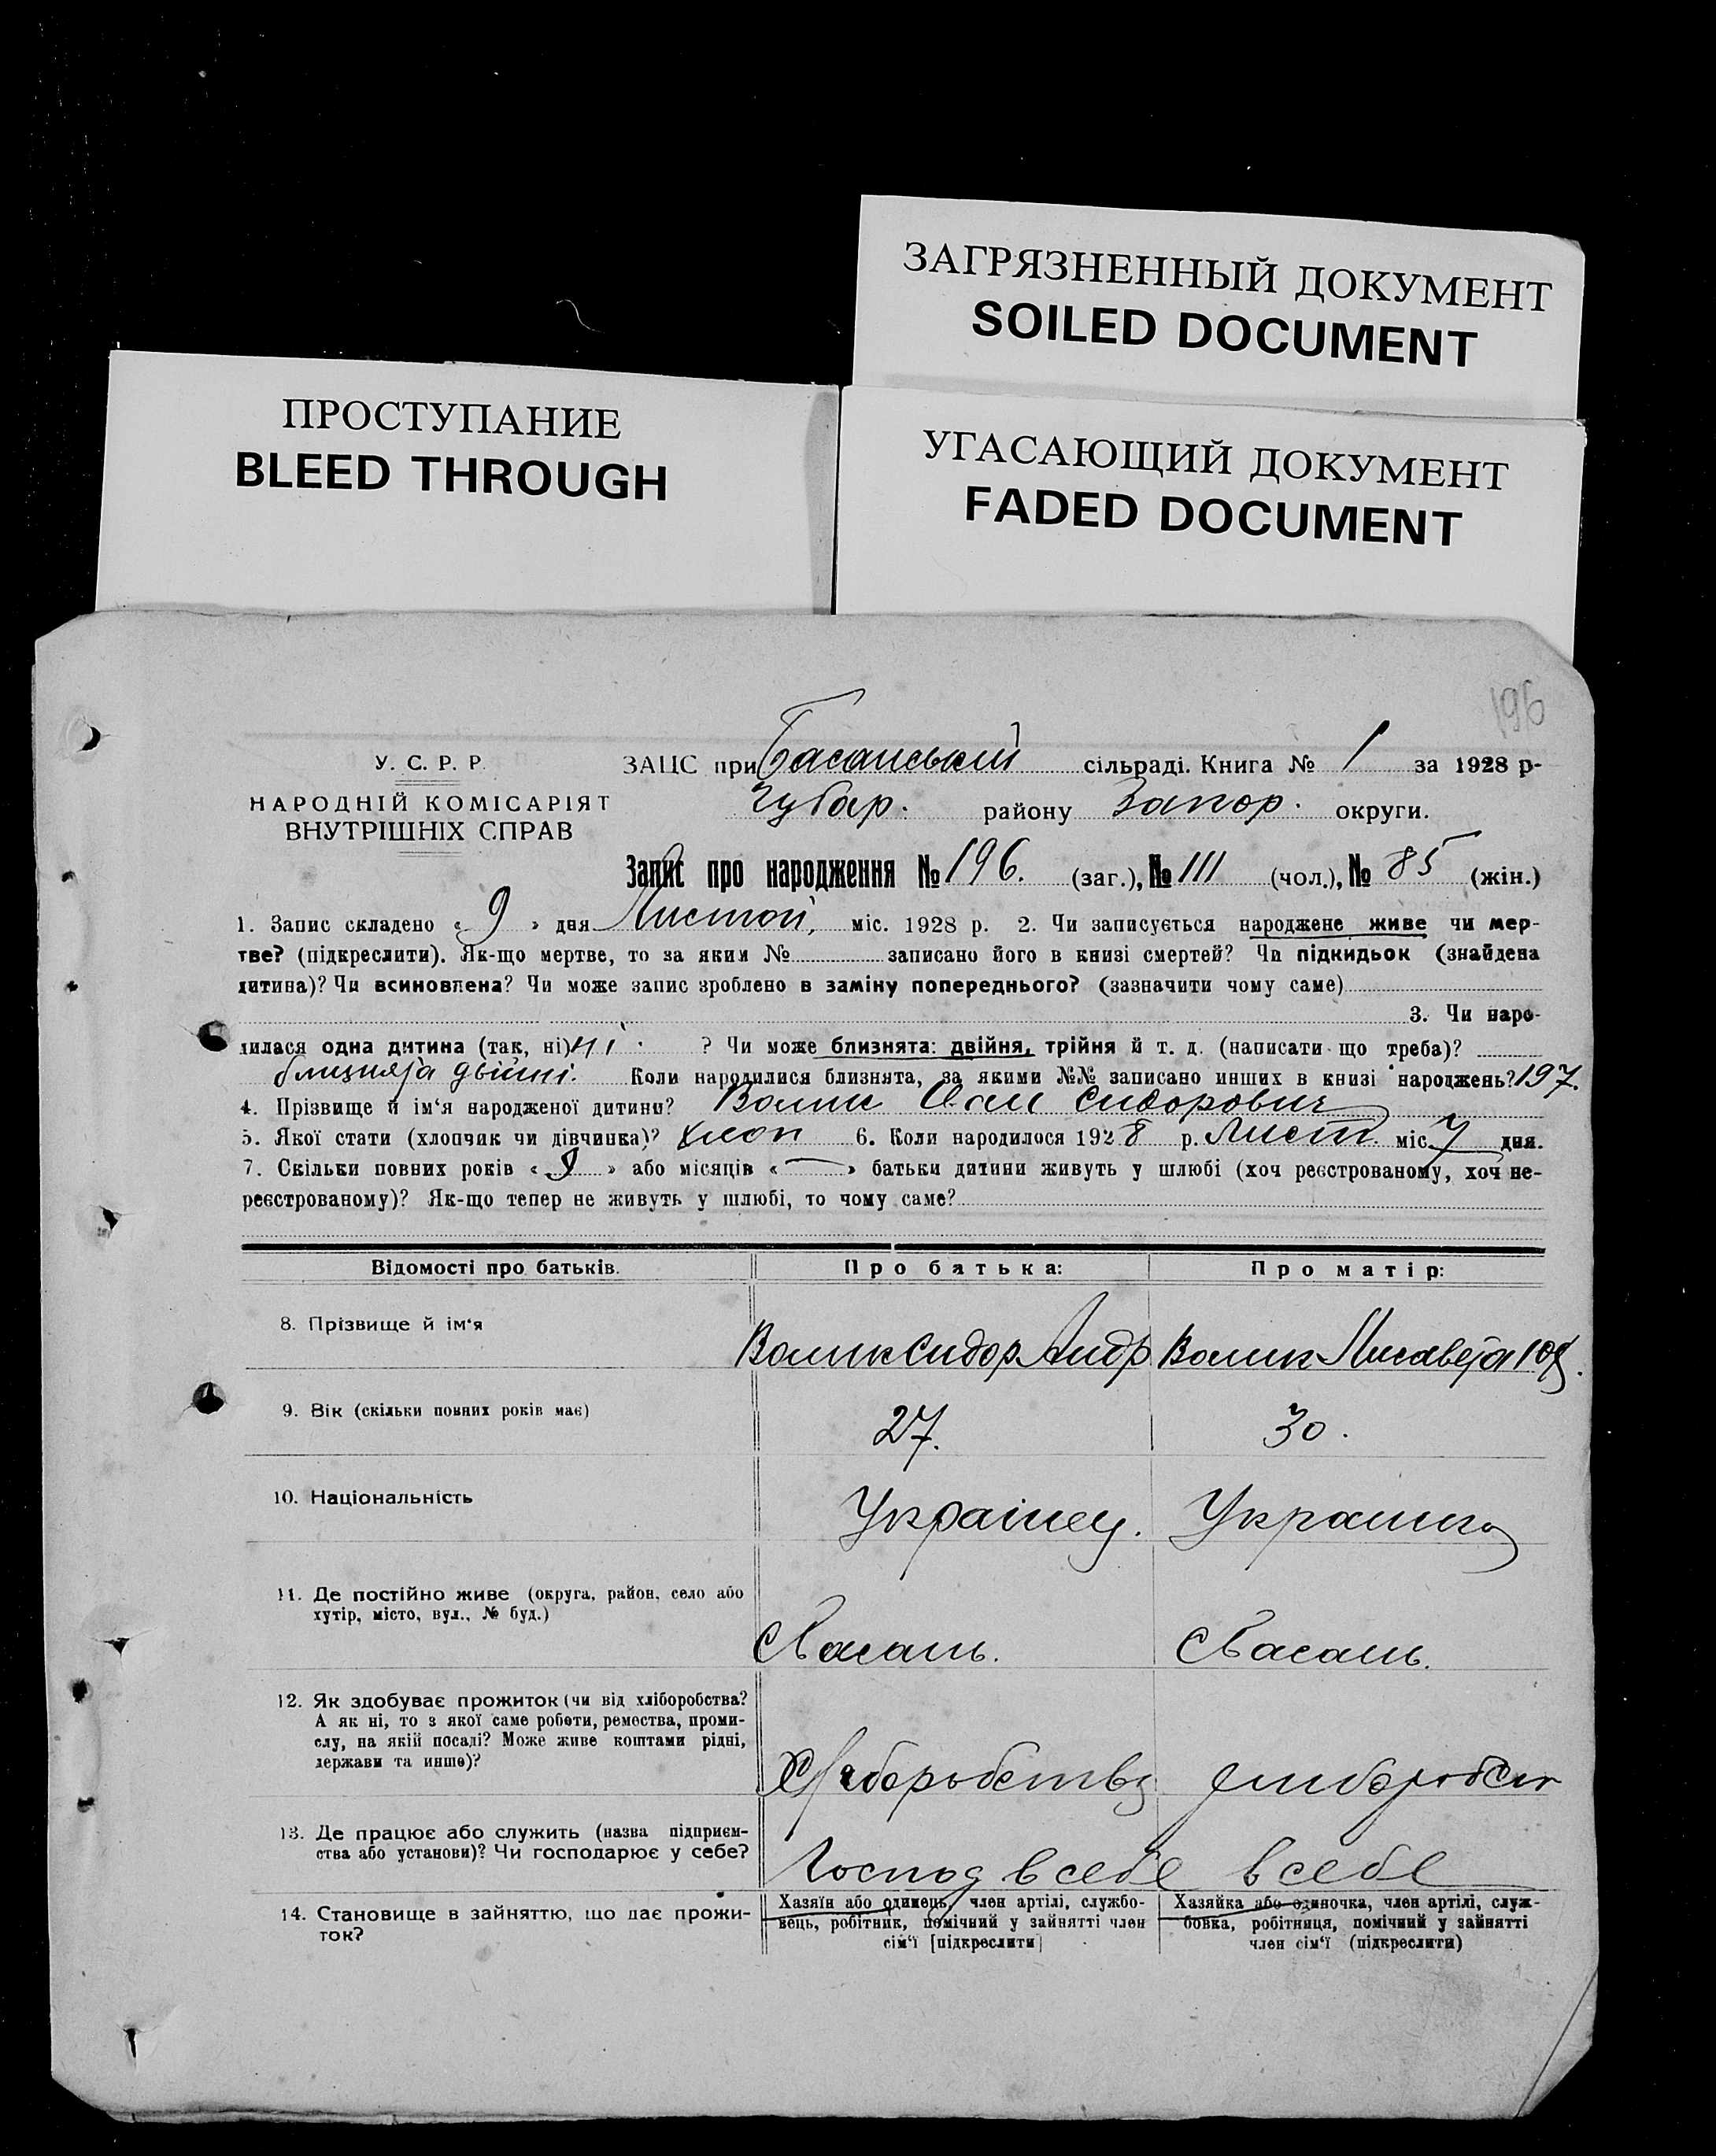 ЗАГРЯЗНЕННЫЙ ДОКУМЕНТ
SOILED DOCUMENT
ПРОСТУПАНИЕ
BLEED THROUGH
УГАСАЮЩИЙ ДОКУМЕНТ
FADED DOCUMENT
196
У. С. Р. Р.
НАРОДНІЙ КОМІСАРІЯТ
ВНУТРІШНІХ СПРАВ
ЗАЦС при Басанський сільраді. Книга № 1 за 1928 р-
Чубар. району Запор. округи.
Запис про народження № 196. (заг.), № 111 (чол.), № 85 (жін.)
1. Запис складено « 9 » дня Листоп, міс. 1928 р. 2. Чи записується народжене живе чи мер-
тве? (підкреслити). Як-що мертве, то за яким № записано його в книзі смертей? Чи підкидьок (знайдена
дитина)? Чи всиновлена? Чи може запис зроблено в заміну попереднього? (зазначити чому саме)
3. Чи наро-
дилася одна дитина (так, ні) ні. ? Чи може близнята: двійня, трійня й т. д. (написати що треба)?
близнята двійні. Коли народилися близнята, за якими №№ записано инших в книзі народжень? 197.
4. Прізвище й ім'я народженої дитини? Волик Сидорович
5. Якої стати (хлопчик чи дівчинка)? хлоп 6. Коли народилося 1928 р. Лист. міс. 7 дня.
7. Скільки повних років « 9 » або місяців « — » батьки дитини живуть у шлюбі (хоч реєстрованому, хоч не-
реєстрованому)? Як-що тепер не живуть у шлюбі, то чому саме?
Відомості про батьків. Про батька: Про матір:
8. Прізвище й ім'я
Волик Сидор Андр Волик Лисавета
9. Вік (скільки повних років має)
27. 30.
10. Національність
Українец. Українка
11. Де постійно живе (округа, район, село або
хутір, місто, вул., № буд.)
с Басань. с Басань.
12. Як здобуває прожиток (чи від хліборобства?
А як ні, то з якої саме роботи, ремества, проми-
слу, на якій посаді? Може живе коштами рідні,
держави та инше)?
13. Де працює або служить (назва підприєм-
ства або установи)? Чи господарює у себе?
Господ в себе в себе
14. Становище в зайняттю, що дає прожи-
ток?
Хазяїн або одинець, член артілі, службо-
вець, робітник, помічний у зайнятті член
сім'ї [підкреслити]
Хазяйка або одиночка, член артілі, служ-
бовка, робітниця, помічний у зайнятті
член сім'ї (підкреслити)